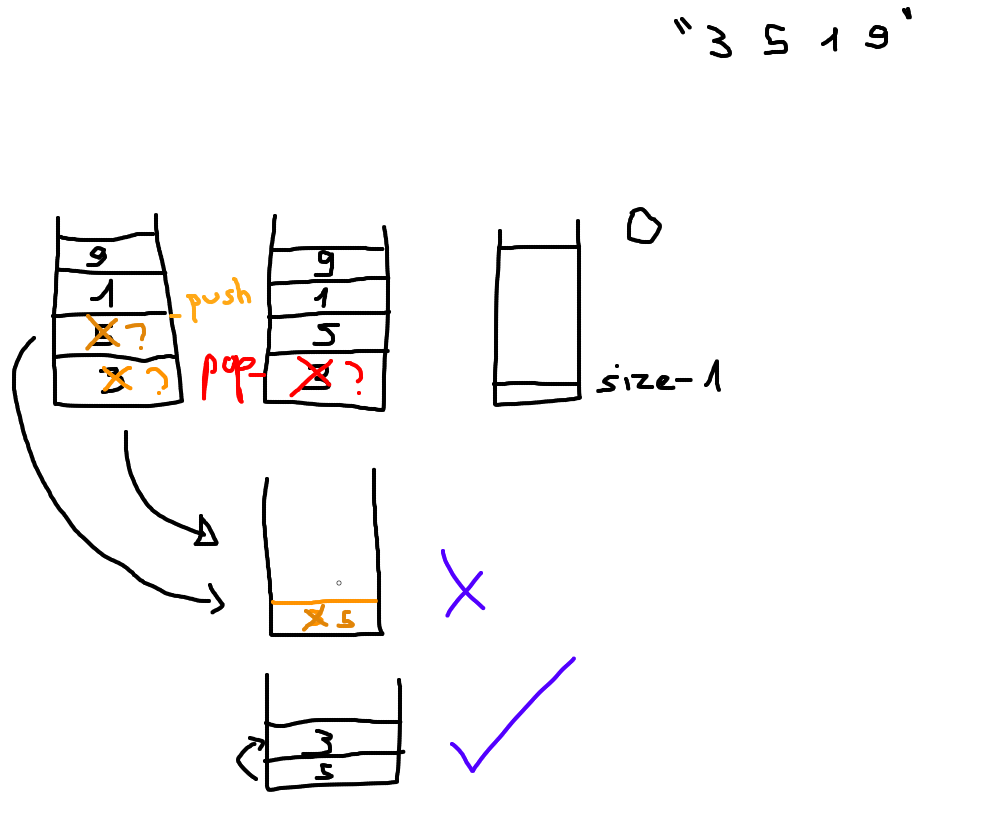 "3 5 1 9"
0
9
1
5 ?
3 ?
push
9
1
5
3 ?
pop
size-1
5
3
5